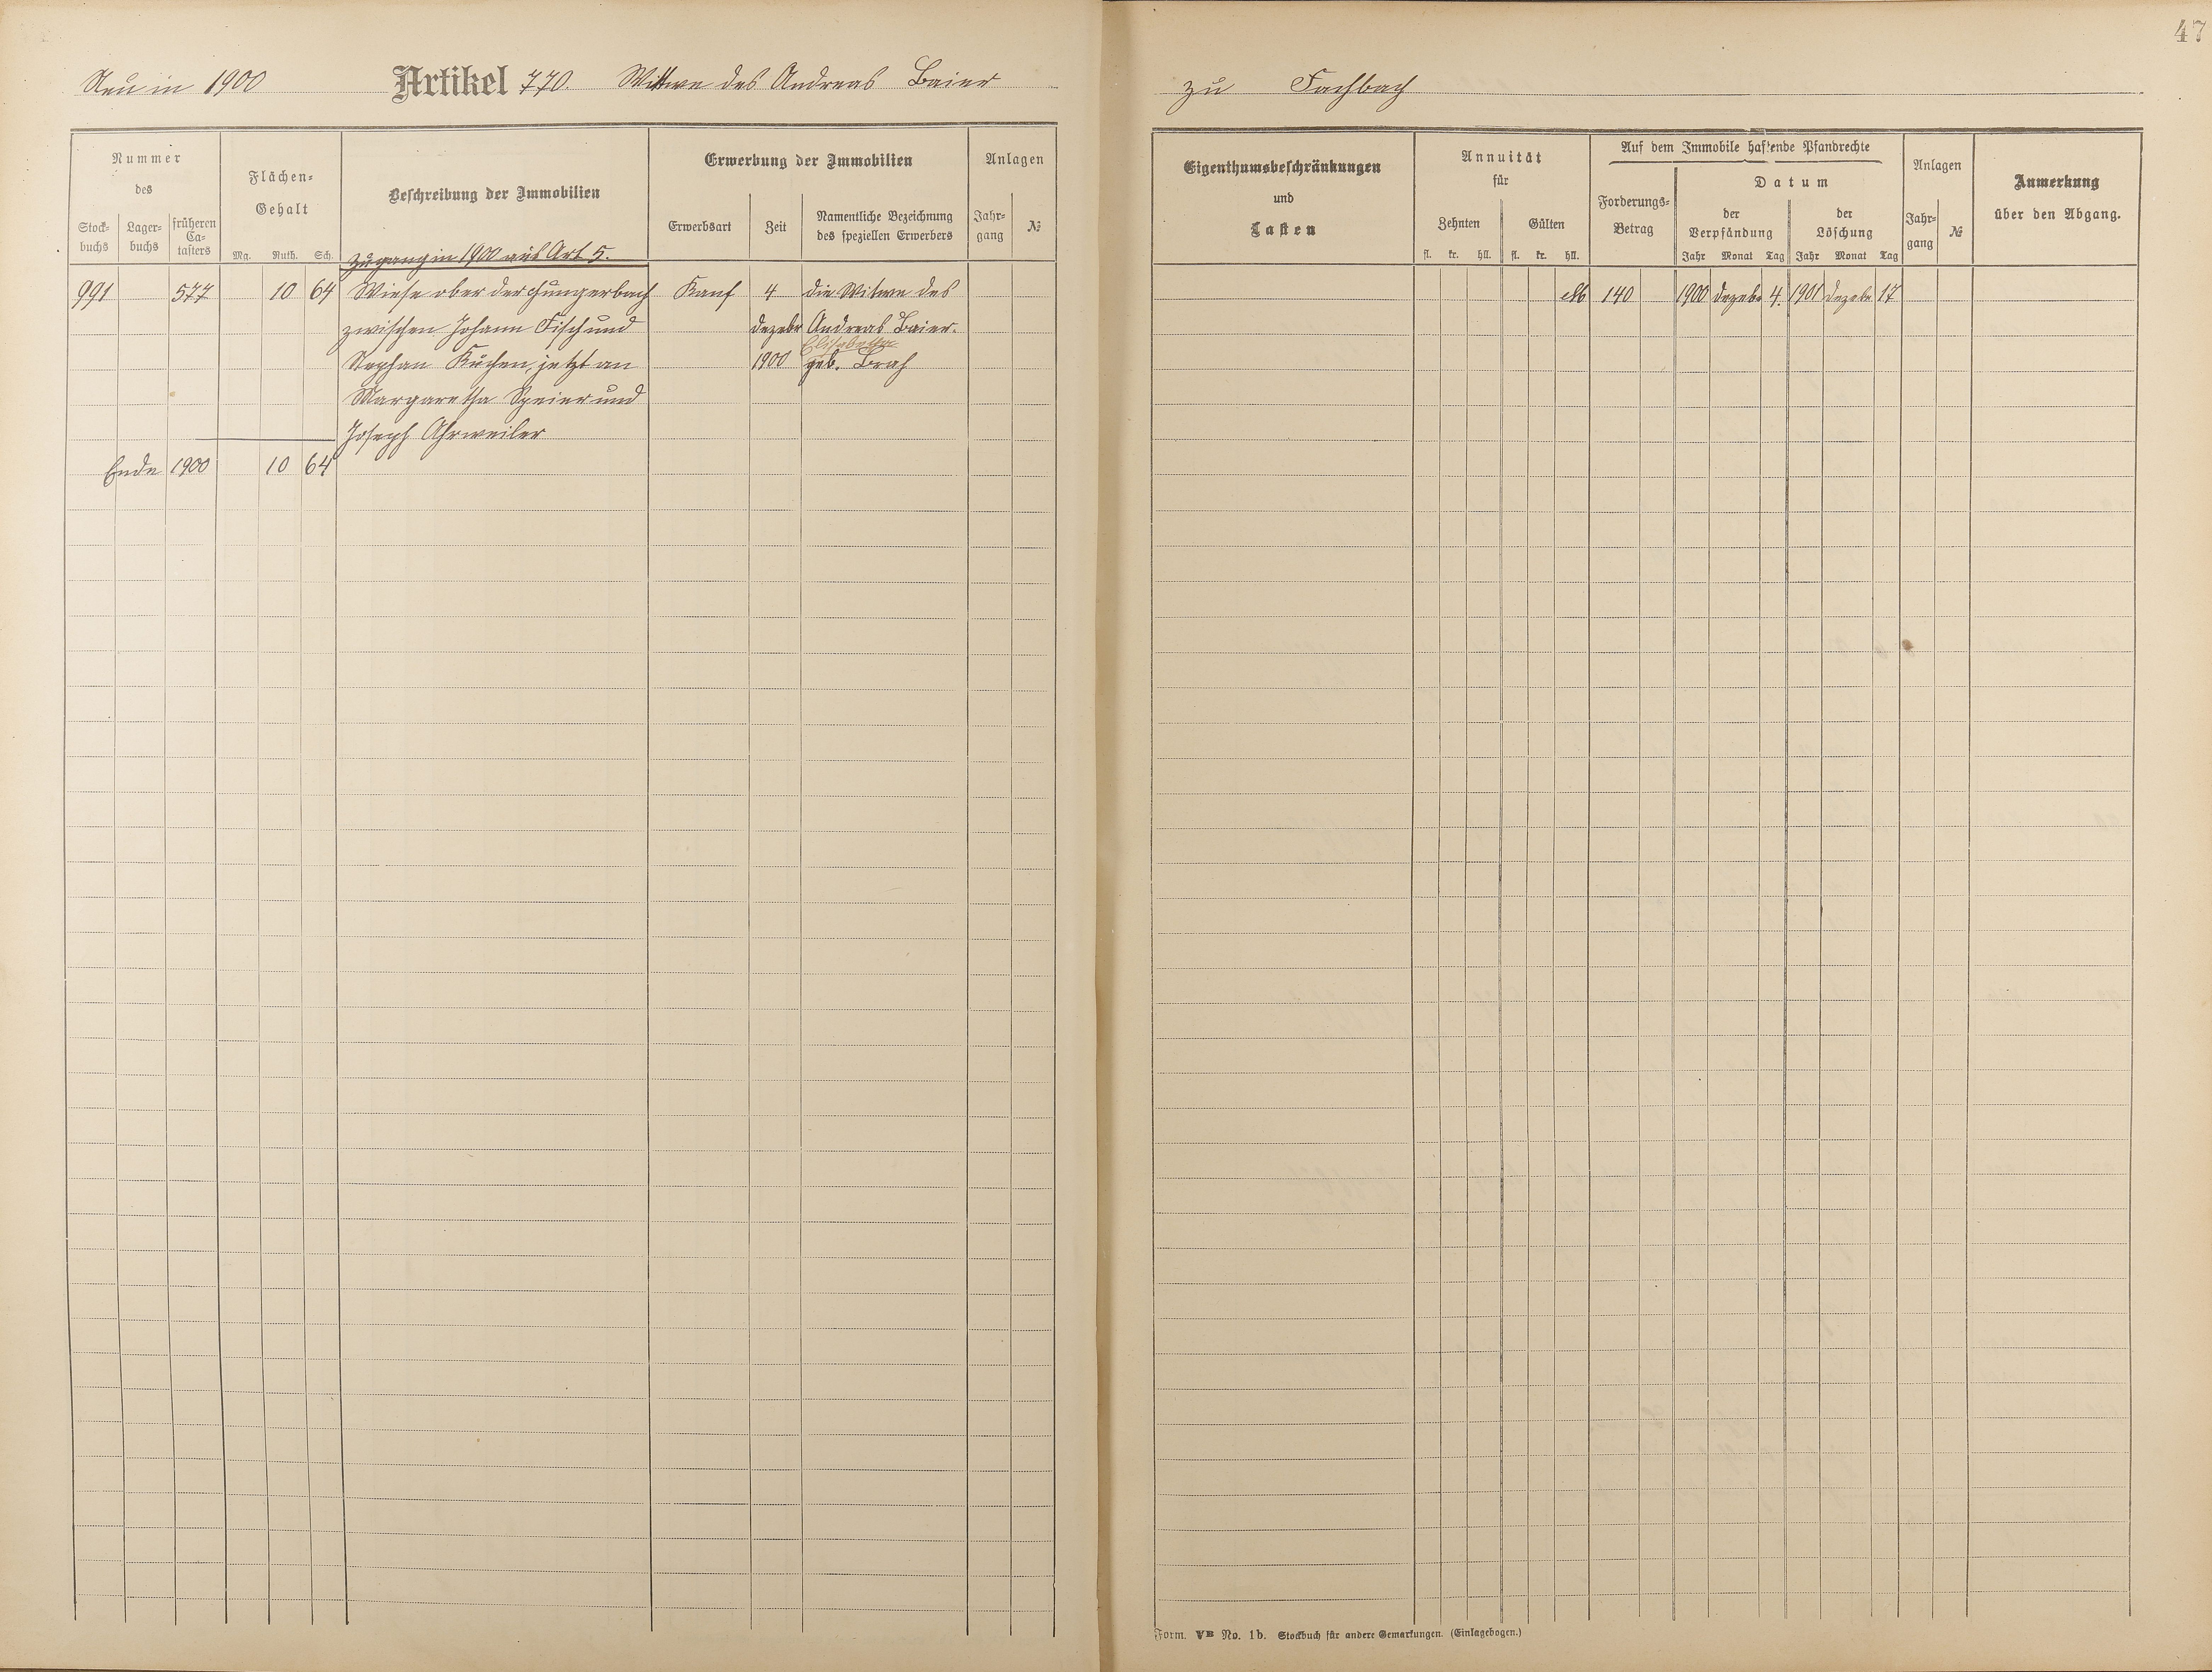 47
Neu in 1900 Artikel 770. Wittwe des Andreas Baier
zu Fachbach
Nummer
des
Stock-
buchs
Lager-
buchs
früheren
Ca-
tasters
Flächen-
Gehalt
Mg. Ruth. Sch.
Beschreibung der Immobilien
Erwerbung der Immobilien
Erwerbsart
Zeit
Namentliche Bezeichnung
des speziellen Erwerbers
Anlagen
Jahr-
gang
№
Zugang in 1900 aus Art 5.
991 577 10 64 Wiese ober der Hungerbach Kauf 4 die Witwe des
zwischen Johann Fisch und Dezebr Andreas Baier.
Elisabetha
Stephan Kuchen, jetzt an 1900 geb. Brah
Margaretha Speier und
Joseph Ahrweiler
Ende 1900 10 64
Eigenthumsbeschränkungen
und
Lasten
Annuität
für
Zehnten
Gülten
fl. kr. hll. fl. kr. hll.
Auf dem Immobile haftende Pfandrechte
Forderungs-
Betrag
Datum
der
Verpfändung
der
Löschung
Jahr Monat Tag Jahr Monat Tag
Anlagen
Jahr-
gang
№
Anmerkung
über den Abgang.
M 140 1900 Dezebr 4. 1901 Dezebr 17
Form. VB No. 1b. Stockbuch für andere Gemarkungen. (Einlagebogen.)